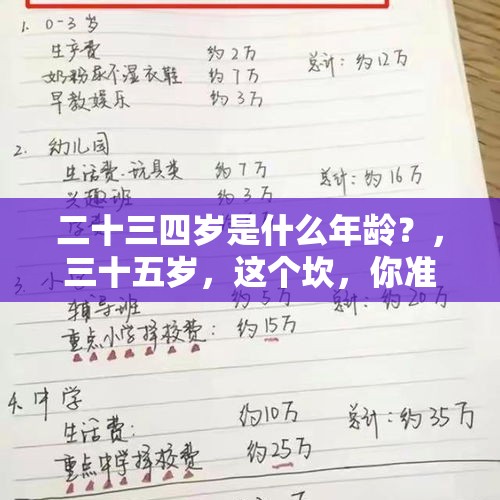 1. 0-3岁
生产费 约2万
总计:约12万
奶粉尿不湿衣鞋 约7万
早教娱乐 约3万
2. 幼儿园
生活费.玩具类 约7万
总计:约16万
兴趣班 约3万
二十三四岁是什么年龄?,
三十五岁,这个坎,你准
3. 小
辅导班 约20万
重点小学择校费: 约15万
4. 中学
生活费: 约10万 总计:约35万
重点中学择校费: 约25万